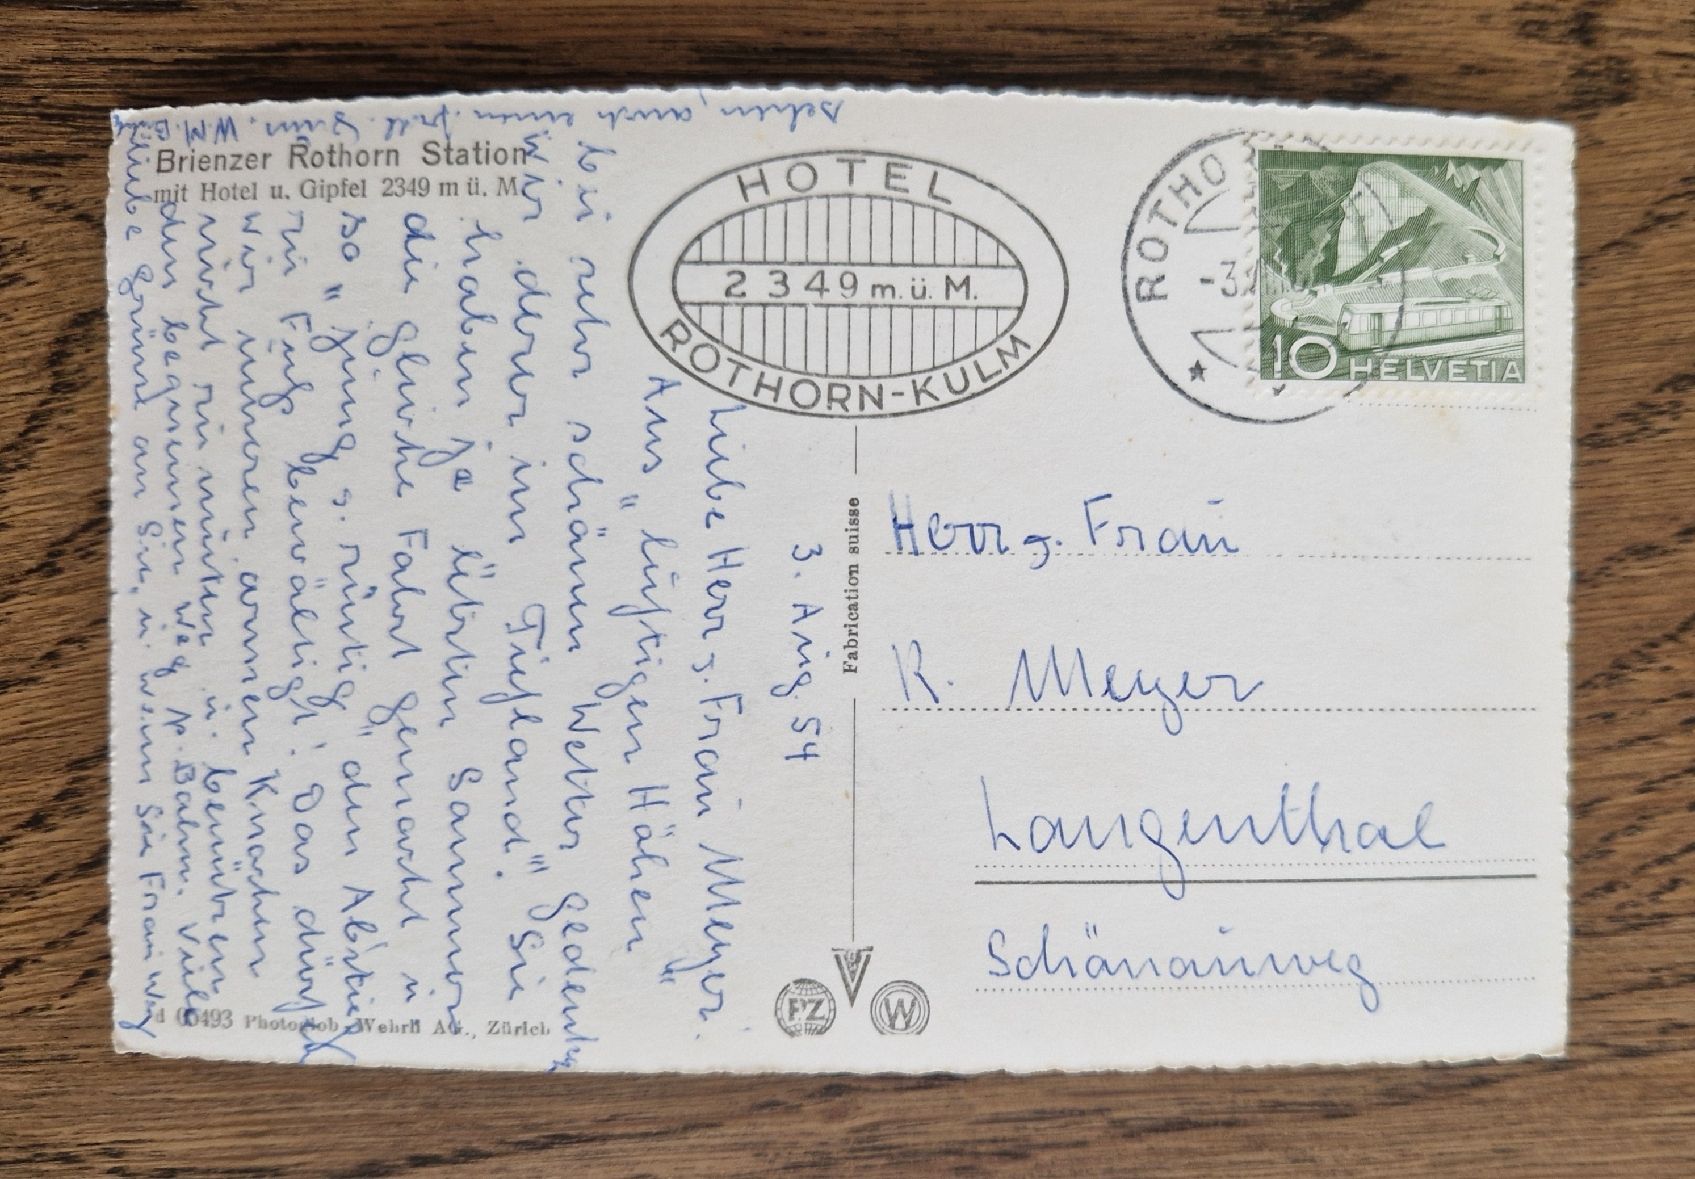 Brienzer Rothorn Station
mit Hotel u. Gipfel 2349 m ü. M.
HOTEL
2349 m. ü. M.
ROTHORN-KULM
ROTHO
-3.
10 HELVETIA
3. Aug. 54
Liebe Herr u. Frau Meyer.
Aus "luftigen Höhen"
bei sehr schönem Wetter gedenken
wir derer im "Tiefland". Sie
haben ja letzten Sommer
die gleiche Fahrt gemacht u.
so "jung u. rüstig" den Abstieg
zu Fuss bewältigt! Das dürfen
wir unseren armen Knochen
nicht zu muten u. benützen
den bequemen Weg p. Bahn. Viele
liebe Grüsse an Sie, u. wenn Sie Frau
sehen, auch einen
Herr u. Frau
R. Meyer
Langenthal
Schönauweg
Fabrication suisse
PZ
W
06493 Photoglob-Wehrli AG., Zürich